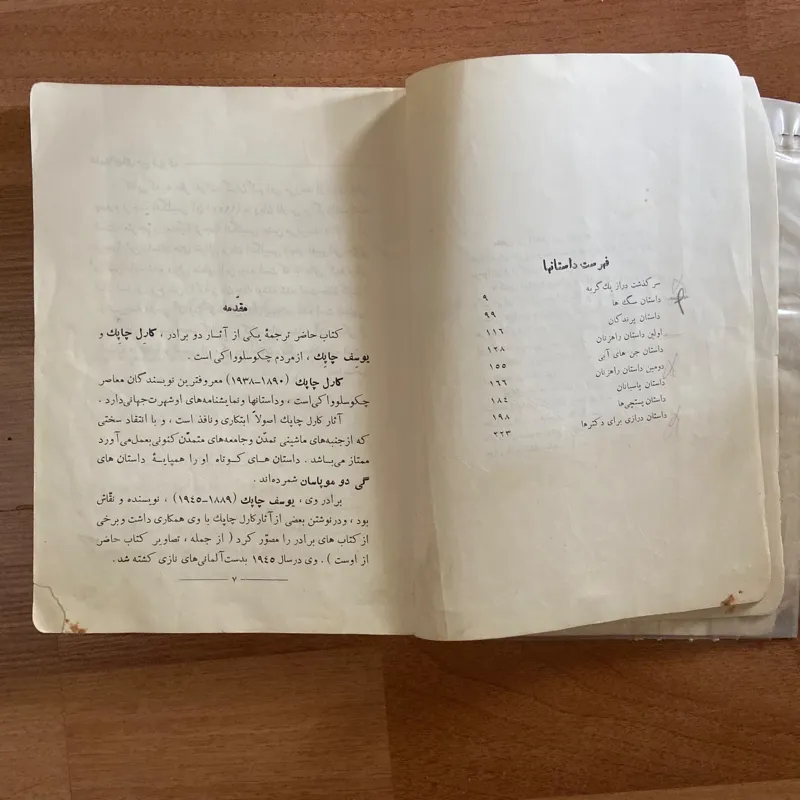 فهرست داستانها
سرگذشت دراز یك گربه ۹
داستان سگ ها ۹۹
داستان پرندگان ۱۱۶
اولین داستان راهزنان ۱۲۸
داستان جن های آبی ۱۵۵
دومین داستان راهزنان ۱۶۶
داستان پاسبانان ۱۸۴
داستان پستچی‌ها ۱۹۸
داستان درازی برای دکترها ۲۲۳
مقدّمه
کتاب حاضر ترجمهٔ یکی از آثار دو برادر ، کارل چاپك و
یوسف چاپك ، ازمردم چکوسلوواکی است .
کارل چاپك (۱۸۹۰-۱۹۳۸) معروفترین نویسندگان معاصر
چکوسلوواکی‌است ، وداستانها ونمایشنامه‌های اوشهرت‌جهانی‌دارد .
آثار کارل چاپك اصولاً ابتکاری ونافذ است ، و با انتقاد سختی
که ازجنبه‌های ماشینی تمدّن وجامعه‌های متمدّن کنونی‌بعمل‌می‌آورد
ممتاز می‌باشد . داستان هـای کـوتاه او را همپایـهٔ داستان های
گی دو موپاسان شمرده‌اند .
برادر وی ، یوسف چاپك (۱۸۸۹-۱۹۴۵) ، نویسنده و نقّاش
بود ، ودرنوشتن بعضی از آثارکارل چاپك با وی همکاری داشت و برخی
از کتاب های برادر را مصوّر کرد ( از جمله ، تصاویر کتاب حاضر
از اوست ) . وی درسال ۱۹۴۵ بدست آلمانی‌های نازی کشته شد .
۷